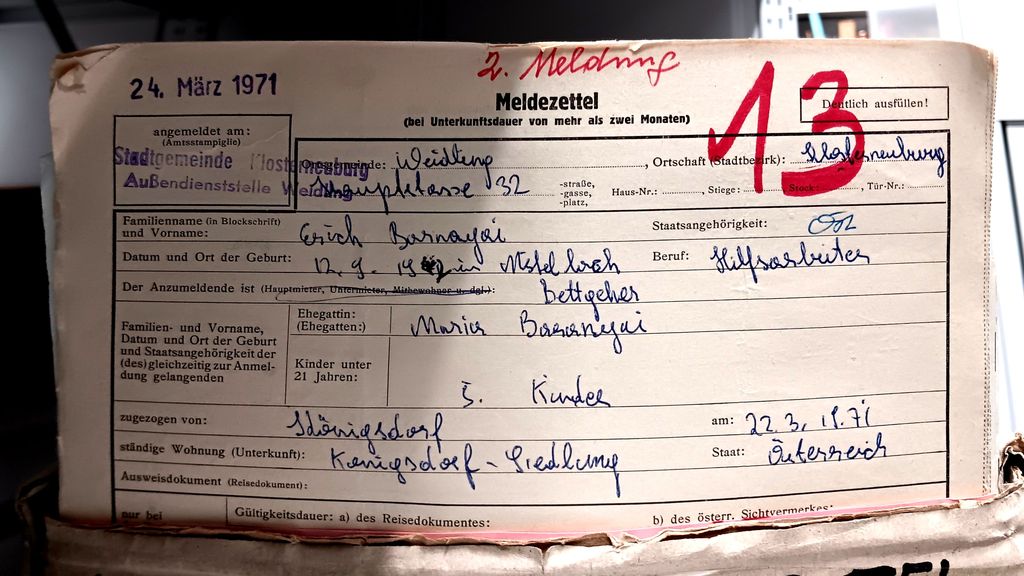 2. Meldung
24. März 1971
13
Meldezettel
Deutlich ausfüllen!
(bei Unterkunftsdauer von mehr als zwei Monaten)
angemeldet am:
(Amtsstampiglie)
Stadtgemeinde Klosterneuburg
Außendienststelle Weidling
Ortsgemeinde: Weidling, Ortschaft (Stadtbezirk): Klosterneuburg
32 -straße, -gasse, -platz, Haus-Nr.: Stiege: Stock: , Tür-Nr.:
Familienname (in Blockschrift) und Vorname: Erich Staatsangehörigkeit: Öst
Datum und Ort der Geburt: 12. 9. in Beruf: Hilfsarbeiter
Der Anzumeldende ist (Hauptmieter, Untermieter, Mitbewohner u. dgl.): Bettgeher
Familien- und Vorname, Datum und Ort der Geburt und Staatsangehörigkeit der (des) gleichzeitig zur Anmeldung gelangenden
Ehegattin: (Ehegatten:) Maria Baranyai
Kinder unter 21 Jahren: 5. Kinder
zugezogen von: Königsdorf am: 22.3.1971
ständige Wohnung (Unterkunft): Königsdorf-Siedlung Staat: Österreich
Ausweisdokument (Reisedokument):
nur bei Gültigkeitsdauer: a) des Reisedokumentes: b) des österr. Sichtvermerkes: